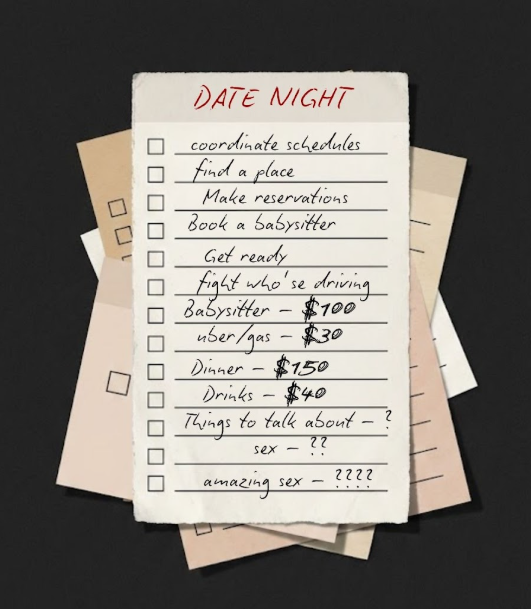 DATE NIGHT
coordinate schedules
find a place
Make reservations
Book a babysitter
Get ready
fight who'se driving
Babysitter – $100
uber/gas – $30
Dinner – $150
Drinks – $40
Things to talk about – ?
sex – ??
amazing sex – ????